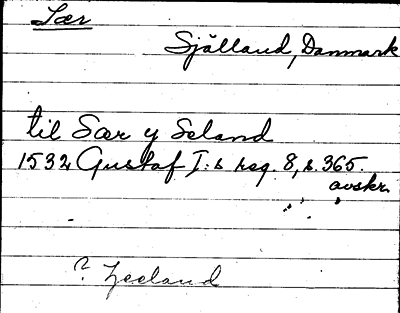 Sær
Själland, Danmark
til Sær y Seland
1532 Gustaf I:s reg. 8, s. 365.
avskr.
? Zeeland